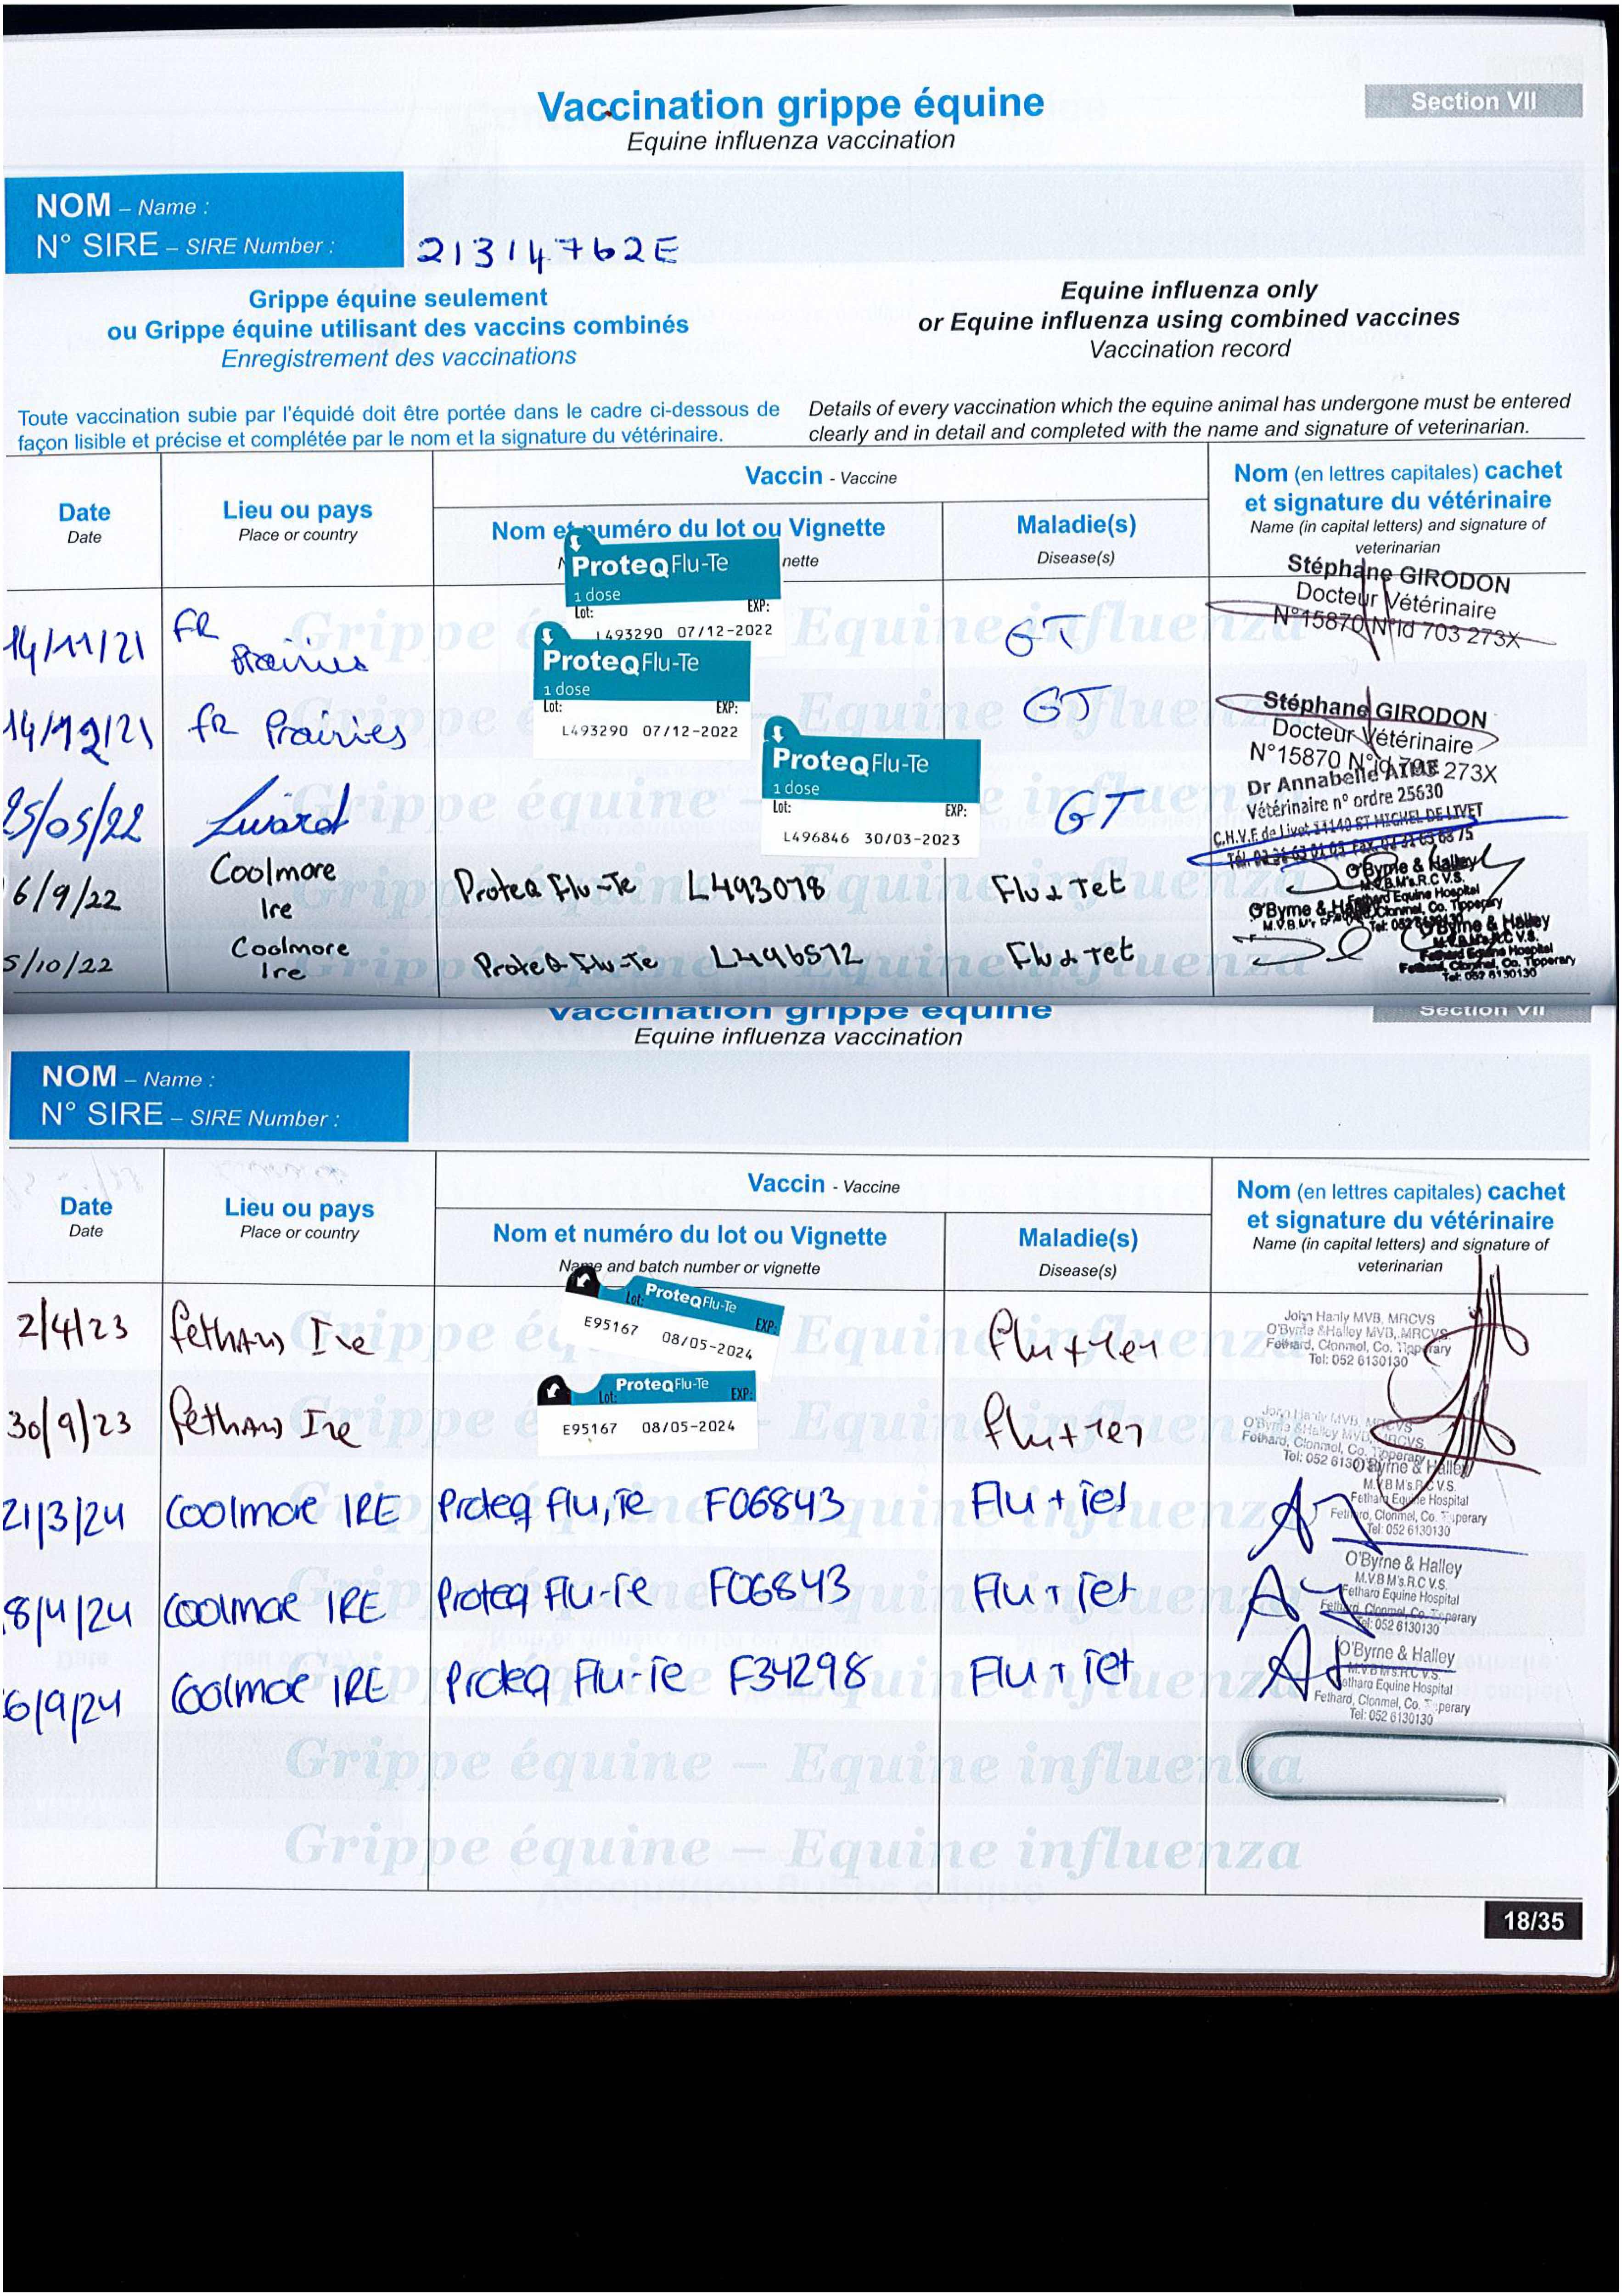 Vaccination grippe équine
Section VII
Equine influenza vaccination
NOM – Name :
N° SIRE – SIRE Number :
21314762E
Grippe équine seulement
ou Grippe équine utilisant des vaccins combinés
Enregistrement des vaccinations
Equine influenza only
or Equine influenza using combined vaccines
Vaccination record
Toute vaccination subie par l'équidé doit être portée dans le cadre ci-dessous de
façon lisible et précise et complétée par le nom et la signature du vétérinaire.
Details of every vaccination which the equine animal has undergone must be entered
clearly and in detail and completed with the name and signature of veterinarian.
Date
Date
Lieu ou pays
Place or country
Vaccin - Vaccine
Nom et numéro du lot ou Vignette
nette
Maladie(s)
Disease(s)
Nom (en lettres capitales) cachet
et signature du vétérinaire
Name (in capital letters) and signature of
veterinarian
14/11/21
FR
Prairies
ProteqFlu-Te
1 dose
Lot: EXP:
L493290 07/12-2022
GT
Stéphane GIRODON
Docteur Vétérinaire
N°15870 N°Id 703 273X
14/12/21
FR Prairies
ProteqFlu-Te
1 dose
Lot: EXP:
L493290 07/12-2022
GT
Stéphane GIRODON
Docteur Vétérinaire
N°15870 N°Id 703 273X
25/05/22
ProteqFlu-Te
1 dose
Lot: EXP:
L496846 30/03-2023
GT
Dr Annabelle AIME
Vétérinaire n° ordre 25630
C.H.V.F. de Livet 14140 ST MICHEL DE LIVET
6/9/22
Coolmore
Ire
Proteq Flu-Te L493078
Flu & Tet
O'Byrne & Halley
M.V.B.M's.R.C.V.S.
Fethard Equine Hospital
5/10/22
Coolmore
Ire
Proteq Flu-Te L496572
Flu & Tet
O'Byrne & Halley
M.V.B.M's.R.C.V.S.
Fethard Equine Hospital
Fethard, Clonmel, Co. Tipperary
Tel: 052 6130130
Vaccination grippe équine
Section VII
Equine influenza vaccination
NOM – Name :
N° SIRE – SIRE Number :
Date
Date
Lieu ou pays
Place or country
Vaccin - Vaccine
Nom et numéro du lot ou Vignette
Name and batch number or vignette
Maladie(s)
Disease(s)
Nom (en lettres capitales) cachet
et signature du vétérinaire
Name (in capital letters) and signature of
veterinarian
2/4/23
Fethard Ire
ProteqFlu-Te
Lot: EXP:
E95167 08/05-2024
Flu + Tet
John Hanly MVB, MRCVS
O'Byrne & Halley MVB, MRCVS
Fethard, Clonmel, Co. Tipperary
Tel: 052 6130130
30/9/23
Fethard Ire
ProteqFlu-Te
Lot: EXP:
E95167 08/05-2024
Flu + Tet
John Hanly MVB, MRCVS
O'Byrne & Halley MVB, MRCVS
Fethard, Clonmel, Co. Tipperary
Tel: 052 6130130
21/3/24
Coolmore IRE
Proteq Flu, Te F06843
Flu + Tet
O'Byrne & Halley
M.V.B M's.R.C V.S.
Fethard Equine Hospital
Fethard, Clonmel, Co. Tipperary
Tel: 052 6130130
8/4/24
Coolmore IRE
Proteq Flu-Te F06843
Flu + Tet
O'Byrne & Halley
M.V.B M's.R.C V.S.
Fethard Equine Hospital
Fethard, Clonmel, Co. Tipperary
Tel: 052 6130130
6/9/24
Coolmore IRE
Proteq Flu-Te F34298
Flu + Tet
O'Byrne & Halley
M.V.B M's.R.C V.S.
Fethard Equine Hospital
Fethard, Clonmel, Co. Tipperary
Tel: 052 6130130
Grippe équine – Equine influenza
Grippe équine – Equine influenza
18/35